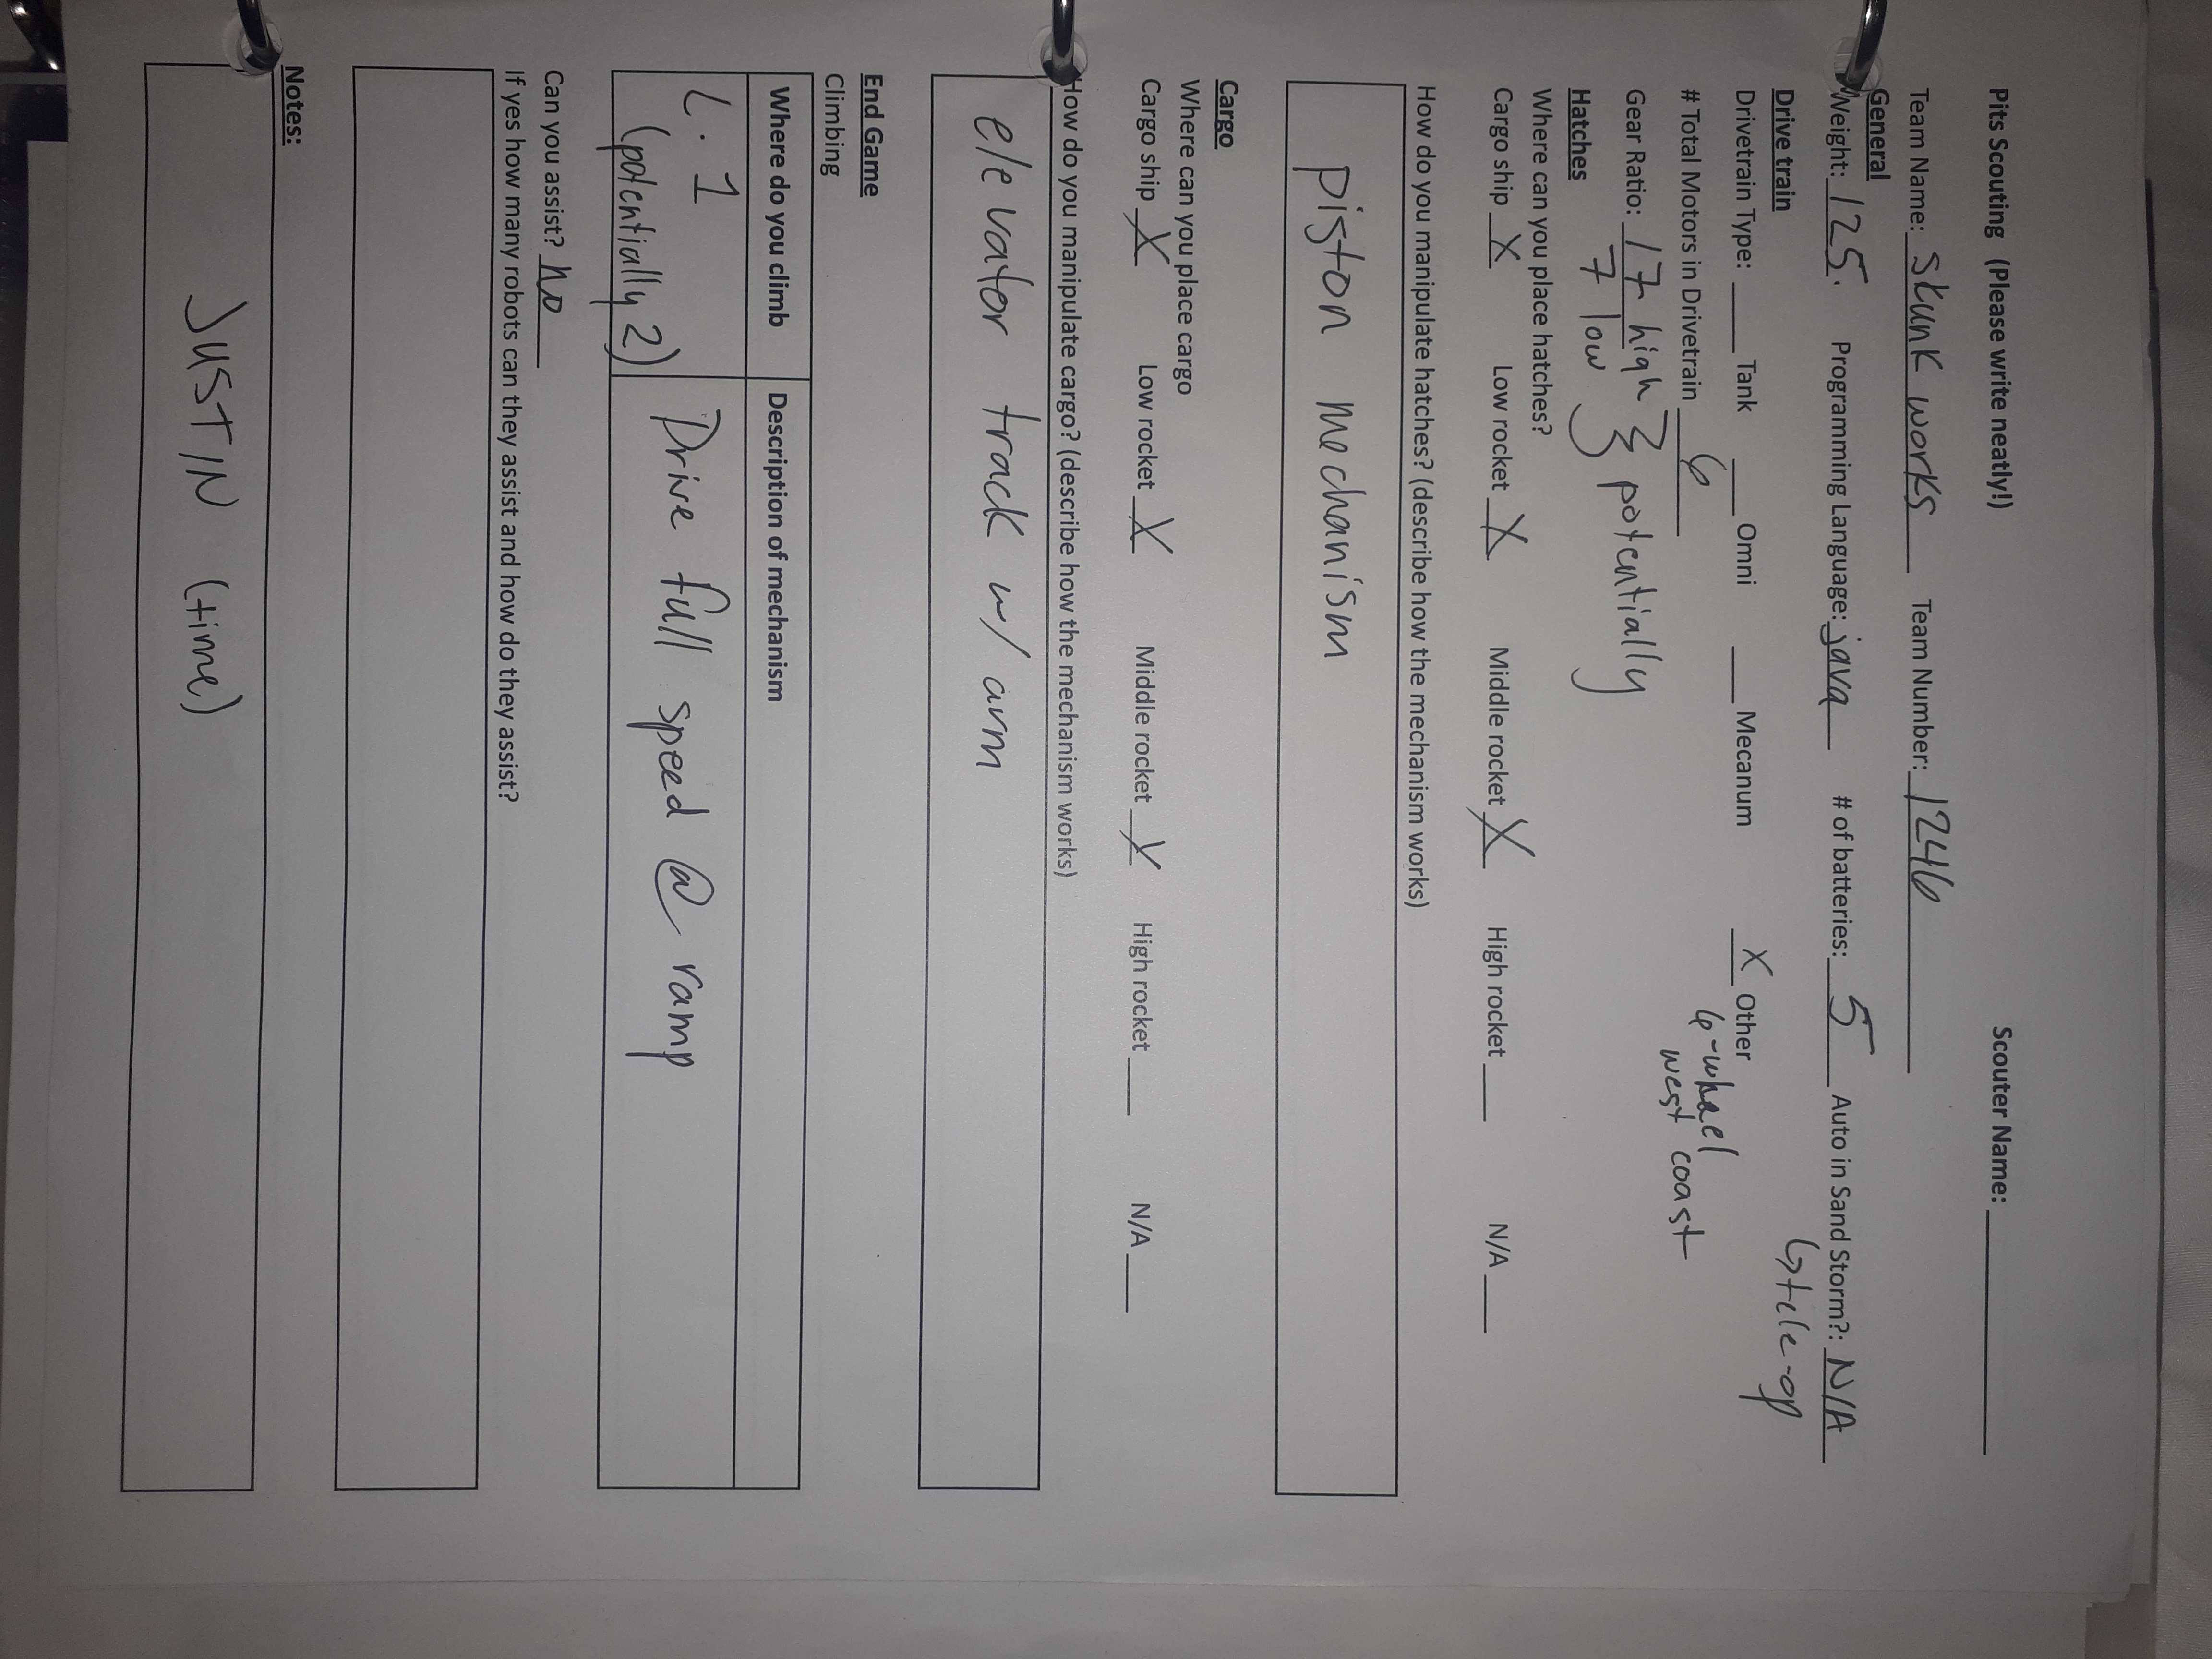 Pits Scouting (Please write neatly!) Scouter Name:
Team Name: Skunk works Team Number: 1246
General
Weight: 125. Programming Language: java # of batteries: 5 Auto in Sand Storm?: N/A
↳tele-op
Drive train
Drivetrain Type: Tank Omni Mecanum X Other
6-wheel
west coast
# Total Motors in Drivetrain 6
Gear Ratio: 17 high } potentially
7 low
Hatches
Where can you place hatches?
Cargo ship X Low rocket X Middle rocket X High rocket N/A
How do you manipulate hatches? (describe how the mechanism works)
piston mechanism
Cargo
Where can you place cargo
Cargo ship X Low rocket X Middle rocket X High rocket N/A
How do you manipulate cargo? (describe how the mechanism works)
elevator track w/ arm
End Game
Climbing
Where do you climb Description of mechanism
L. 1 Drive full speed @ ramp
(potentially 2)
Can you assist? no
If yes how many robots can they assist and how do they assist?
Notes:
JUSTIN (time)